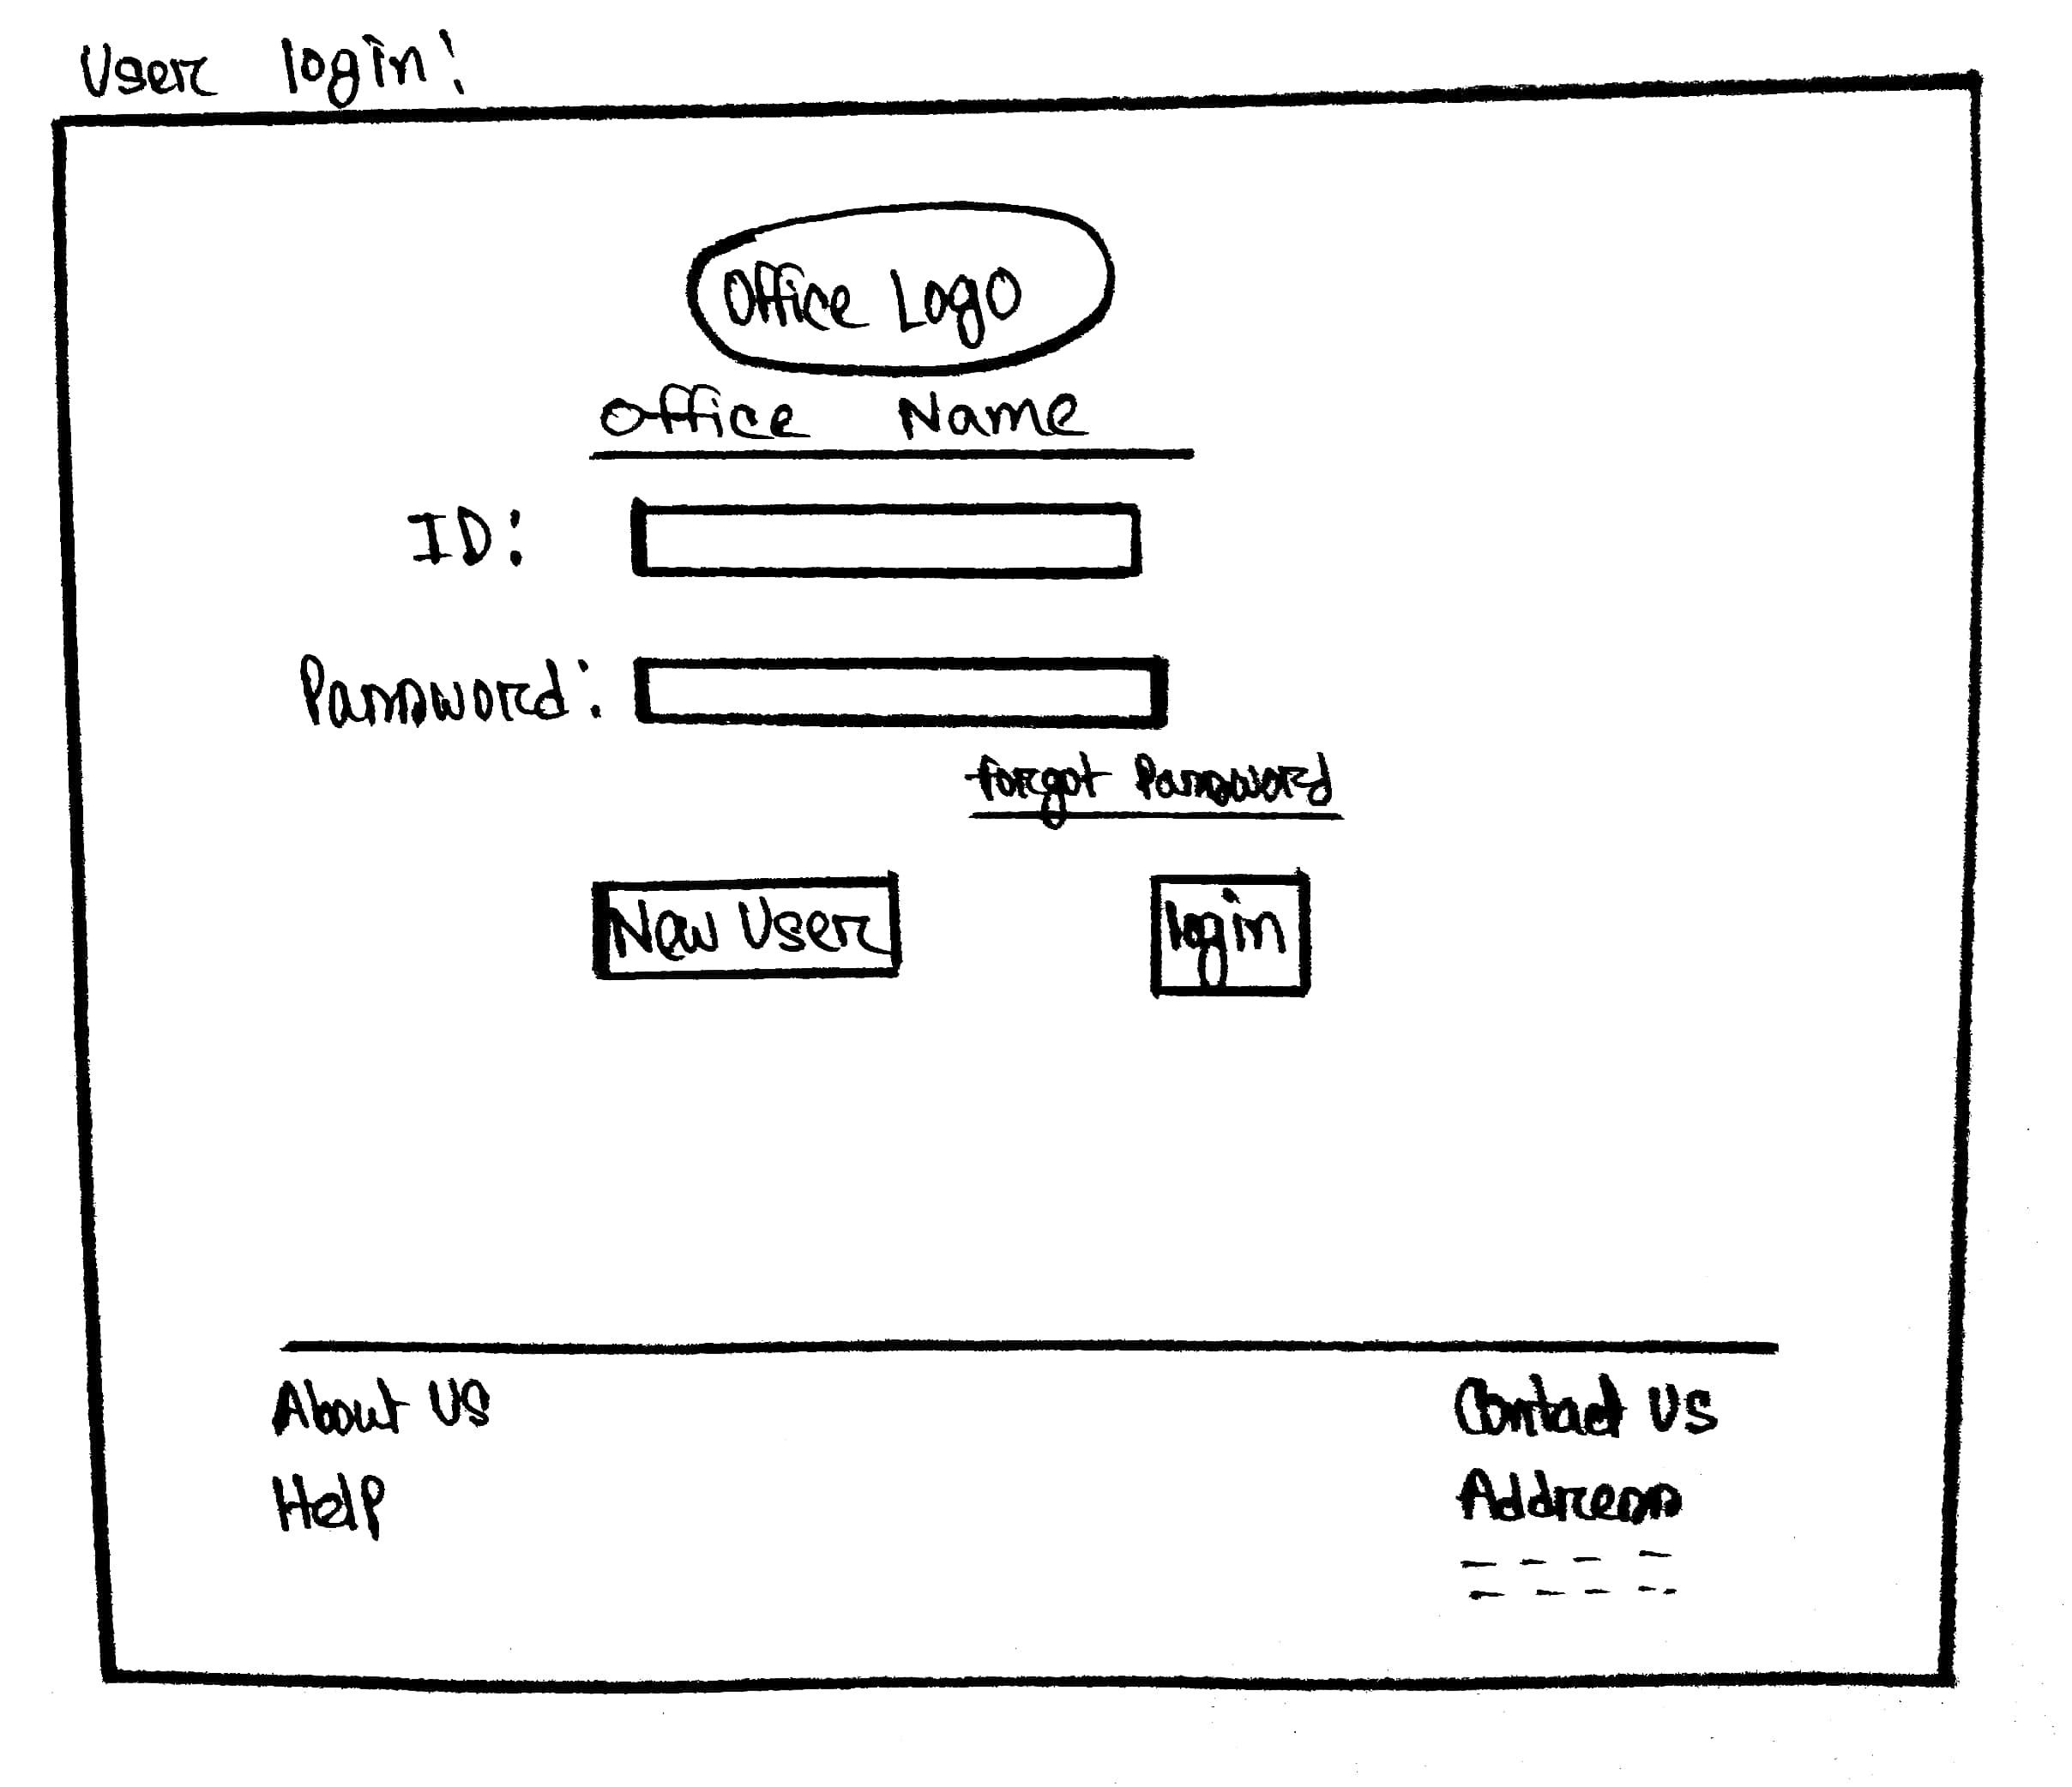 User login:
Office Logo
Office Name
ID:
Password:
Forgot Password
New User
login
About US
Contact US
Help
Address